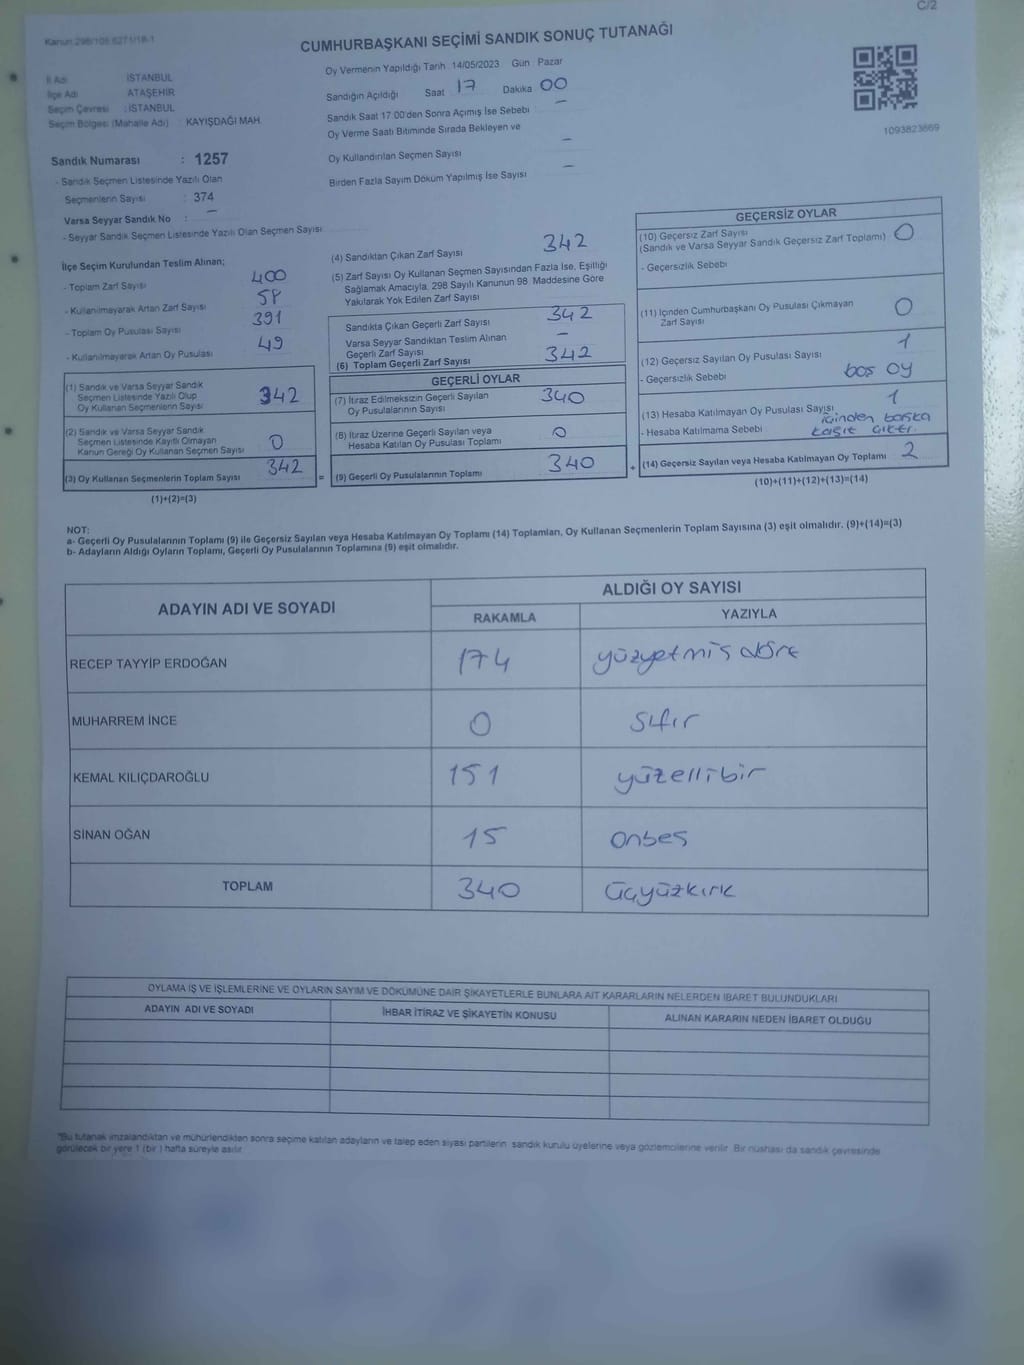 C/2
Kanun:298/105,6271/18-1
CUMHURBAŞKANI SEÇİMİ SANDIK SONUÇ TUTANAĞI
İl Adı : İSTANBUL
İlçe Adı : ATAŞEHİR
Seçim Çevresi : İSTANBUL
Seçim Bölgesi (Mahalle Adı) : KAYIŞDAĞI MAH.
Oy Vermenin Yapıldığı Tarih 14/05/2023 Gün Pazar
Sandığın Açıldığı Saat 17 Dakika 00
Sandık Saat 17:00'den Sonra Açımış İse Sebebi —
Oy Verme Saati Bitiminde Sırada Bekleyen ve
Oy Kullandırılan Seçmen Sayısı —
Birden Fazla Sayım Döküm Yapılmış İse Sayısı —
1093823869
Sandık Numarası : 1257
- Sandık Seçmen Listesinde Yazılı Olan
Seçmenlerin Sayısı : 374
Varsa Seyyar Sandık No : —
- Seyyar Sandık Seçmen Listesinde Yazılı Olan Seçmen Sayısı
İlçe Seçim Kurulundan Teslim Alınan;
- Toplam Zarf Sayısı 400
- Kullanılmayarak Artan Zarf Sayısı 58
- Toplam Oy Pusulası Sayısı 391
- Kullanılmayarak Artan Oy Pusulası 49
(1) Sandık ve Varsa Seyyar Sandık
Seçmen Listesinde Yazılı Olup
Oy Kullanan Seçmenlerin Sayısı 342
(2) Sandık ve Varsa Seyyar Sandık
Seçmen Listesinde Kayıtlı Olmayan
Kanun Gereği Oy Kullanan Seçmen Sayısı 0
(3) Oy Kullanan Seçmenlerin Toplam Sayısı 342
(1)+(2)=(3)
(4) Sandıktan Çıkan Zarf Sayısı 342
(5) Zarf Sayısı Oy Kullanan Seçmen Sayısından Fazla İse, Eşitliği
Sağlamak Amacıyla, 298 Sayılı Kanunun 98. Maddesine Göre
Yakılarak Yok Edilen Zarf Sayısı
Sandıkta Çıkan Geçerli Zarf Sayısı 342
Varsa Seyyar Sandıktan Teslim Alınan
Geçerli Zarf Sayısı —
(6) Toplam Geçerli Zarf Sayısı 342
GEÇERLİ OYLAR
(7) İtiraz Edilmeksizin Geçerli Sayılan
Oy Pusulalarının Sayısı 340
(8) İtiraz Üzerine Geçerli Sayılan veya
Hesaba Katılan Oy Pusulası Toplamı 0
= (9) Geçerli Oy Pusulalarının Toplamı 340
GEÇERSİZ OYLAR
(10) Geçersiz Zarf Sayısı
(Sandık ve Varsa Seyyar Sandık Geçersiz Zarf Toplamı) 0
- Geçersizlik Sebebi
(11) İçinden Cumhurbaşkanı Oy Pusulası Çıkmayan
Zarf Sayısı 0
(12) Geçersiz Sayılan Oy Pusulası Sayısı 1
- Geçersizlik Sebebi boş oy
(13) Hesaba Katılmayan Oy Pusulası Sayısı 1
- Hesaba Katılmama Sebebi içinden başka
kağıt çıktı.
+ (14) Geçersiz Sayılan veya Hesaba Katılmayan Oy Toplamı 2
(10)+(11)+(12)+(13)=(14)
NOT:
a- Geçerli Oy Pusulalarının Toplamı (9) ile Geçersiz Sayılan veya Hesaba Katılmayan Oy Toplamı (14) Toplamları, Oy Kullanan Seçmenlerin Toplam Sayısına (3) eşit olmalıdır. (9)+(14)=(3)
b- Adayların Aldığı Oyların Toplamı, Geçerli Oy Pusulalarının Toplamına (9) eşit olmalıdır.
ADAYIN ADI VE SOYADI ALDIĞI OY SAYISI
RAKAMLA YAZIYLA
RECEP TAYYİP ERDOĞAN 174 yüzyetmiş dört
MUHARREM İNCE 0 Sıfır
KEMAL KILIÇDAROĞLU 151 yüzellibir
SİNAN OĞAN 15 Onbeş
TOPLAM 340 üçyüzkırk
OYLAMA İŞ VE İŞLEMLERİNE VE OYLARIN SAYIM VE DÖKÜMÜNE DAİR ŞİKAYETLERLE BUNLARA AİT KARARLARIN NELERDEN İBARET BULUNDUKLARI
ADAYIN ADI VE SOYADI İHBAR İTİRAZ VE ŞİKAYETİN KONUSU ALINAN KARARIN NEDEN İBARET OLDUĞU
*Bu tutanak imzalandıktan ve mühürlendikten sonra seçime katılan adayların ve talep eden siyasi partilerin sandık kurulu üyelerine veya gözlemcilerine verilir. Bir nüshası da sandık çevresinde
görülecek bir yere 1 (bir ) hafta süreyle asılır.